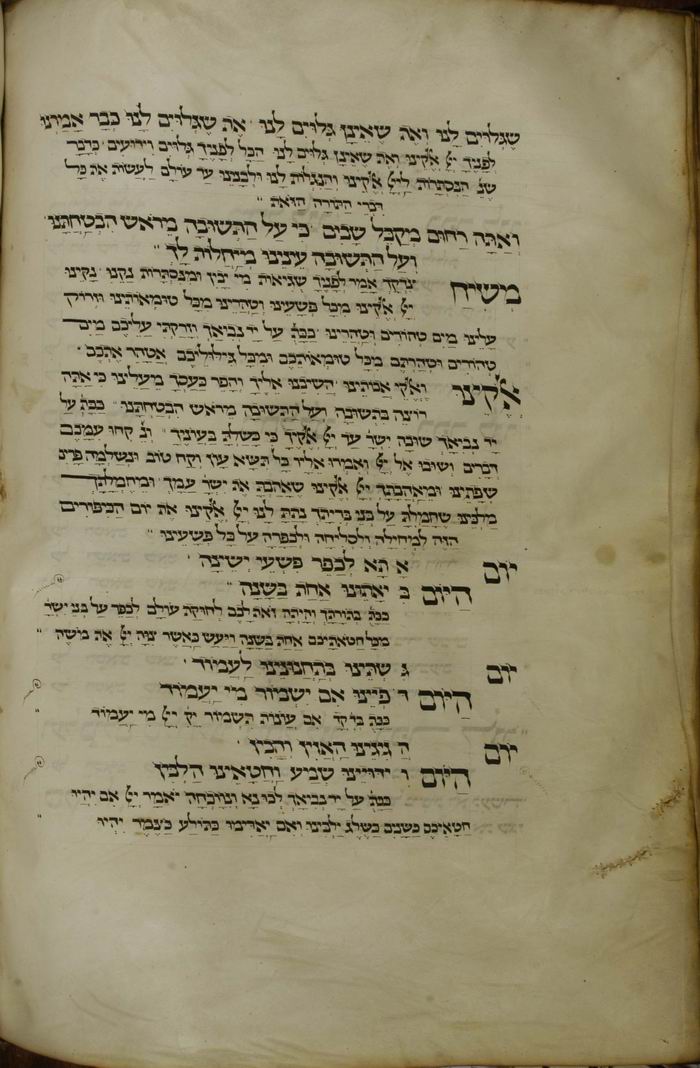 שגלוים לנו ואת שאינן גלוים לנו את שגלוים לנו כבר אמרנו
לפניך יי אלקינו ואת שאינן גלוים לנו הכל לפניך גלוים וידועים כדבר
שנ הנסתרות ליי אלקינו והנגלות לנו ולבנינו עד עולם לעשות את כל
דברי התורה הזאת
ואתה רחום מקבל שבים כי על התשובה מראש הבטחתנו
ועל התשובה עינינו מייחלות לך
משיח צדקך אמר לפניך שגיאות מי יבין ומנסתרות נקנו נקינו
יי אלקינו מכל פשעינו וטהרינו מכל טומאותינו וזרוק
עלינו מים טהורים וטהרינו ככת על יד נביאך וזרקתי עליכם מים
טהורים וטהרתם מכל טומאותכם ומכל גילוליכם אטהר אתכם
אלקינו ואלקי אבותינו השיבנו אליך והפר כעסך מעלינו כי אתה
רוצה בתשובה ועל התשובה מראש הבטחתנו ככת על
יד נביאך שובה ישר עד יי אלקיך כי כשלת בעוניך ונ קחו עמכם
דברים ושובו אל יי ואמרו אליו כל תשא עון וקח טוב ונשלמה פרים
שפתינו ומאהבתך יי אלקינו שאהבת את ישר עמך ומחמלתך
מלכינו שחמלת על בני בריתך נתת לנו יי אלקינו את יום הכיפורים
הזה למחילה ולסליחה ולכפרה על כל פשעינו
יום א תא לכפר פשעי ישינה
היום ב יאתונו אחת בשנה
ככת בתורתך והיתה זאת לכם לחוקת עולם לכפר על בני ישר
מכל חטאתיכם אחת בשנה ויעש כאשר צוה יי את משה
יום ג שתינו בתחנונינו לעמוד
היום ד פיינו אם ישמור מי יעמוד
ככת בדק אם עונות תשמור יק יי מי יעמוד
יום ה גיגינו האזין והבין
היום ו ידויינו שמיע וחטאינו הלבין
ככת על יד נביאך לכו נא ונווכחה יאמר יי אם יהיו
חטאיכם כשנים כשלג ילבינו ואם יאדימו כתולע כצמר יהיו